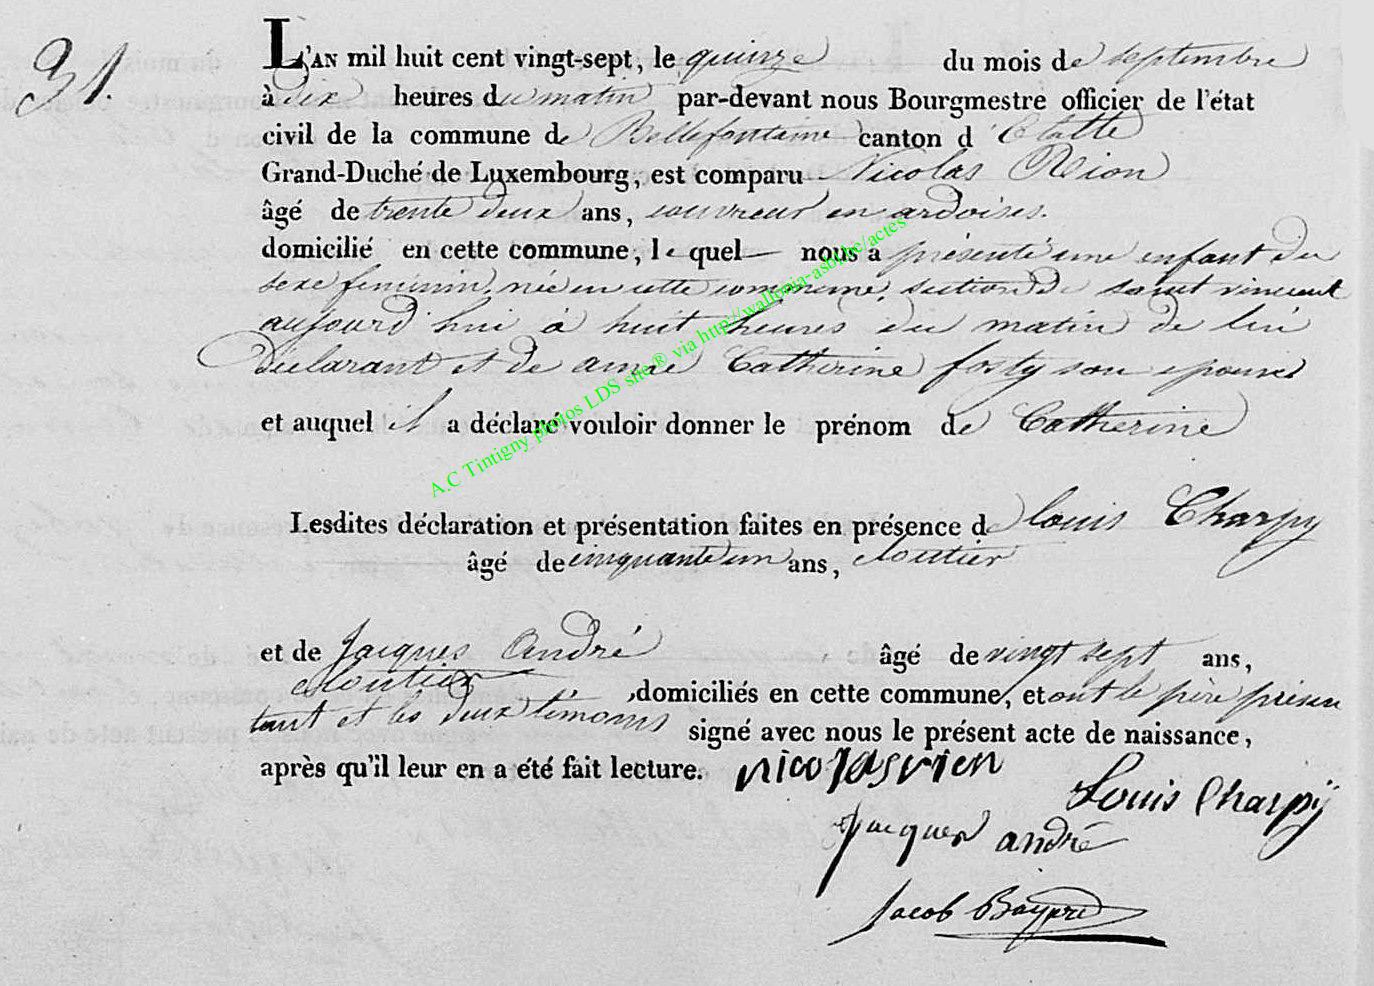 31.
L'AN mil huit cent vingt-sept, le quinze du mois de septembre
à dix heures du matin par-devant nous Bourgmestre officier de l'état
civil de la commune de Bellefontaine canton d'Etalle
Grand-Duché de Luxembourg, est comparu Nicolas Rion
âgé de trente deux ans, couvreur en ardoises.
domicilié en cette commune, lequel nous a présenté une enfant du
sexe feminin, née en cette commune, section de saint vincent
aujourd'hui à huit heures du matin de lui
déclarant et de anne Catherine fosty son epouse
et auquel il a déclaré vouloir donner le prénom de Catherine
Lesdites déclaration et présentation faites en présence de louis Charpy
âgé de cinquante un ans, cloutier
et de Jacques André âgé de vingt sept ans,
cloutier domiciliés en cette commune, et ont le père présen
tant et les deux témoins signé avec nous le présent acte de naissance,
après qu'il leur en a été fait lecture. nicolas rien
Louis Charpÿ
jacques andré
Jacob
A.C Tintigny photos LDS site ® via http://wallonia-asbl.be/actes